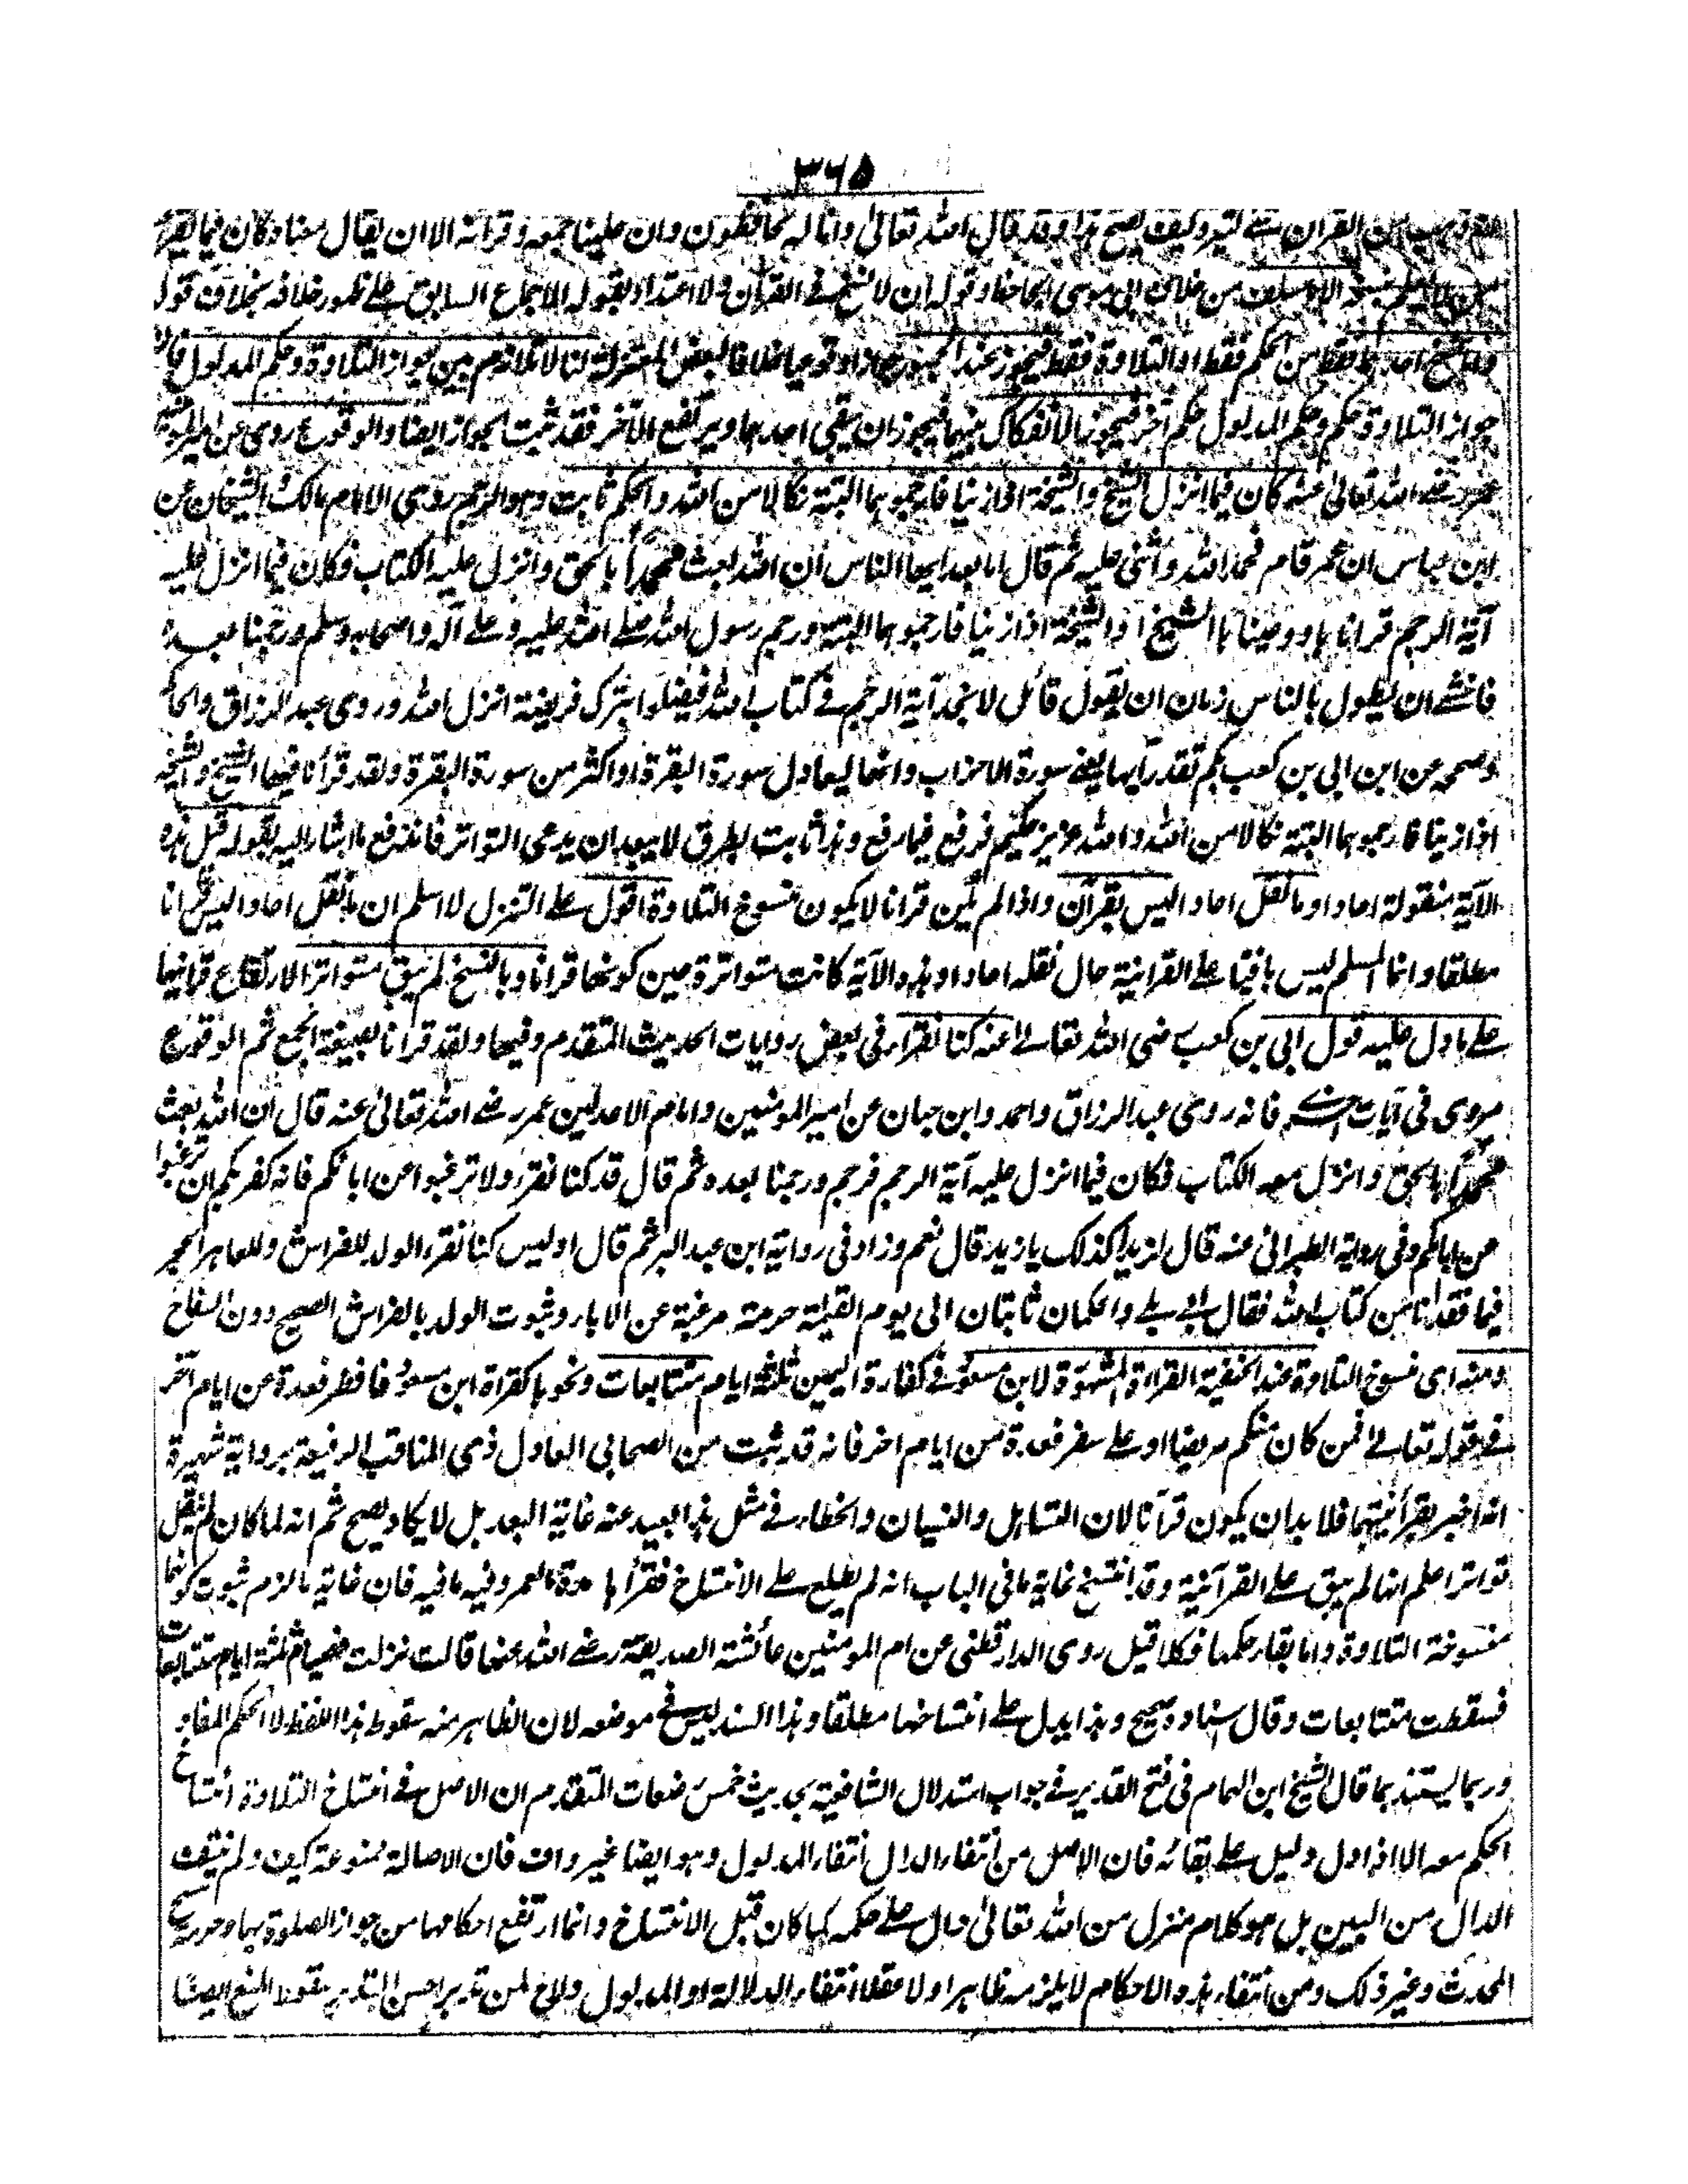 ۳۶۵
القرآن وكيف يصح هذا وقد قال الله تعالى وانا له لحافظون وان علينا جمعه وقرآنه الا ان يقال معناه كان فيما يقرأ
من خلاف ابى موسى ايضا وقوله ان لا نسخ فى القرآن ولا اعتداد بقوله للاجماع السابق على ظهور خلافه بخلاف قول
فقط من الحكم فقط او التلاوة فقط فيجوز عند الجمهور جوازا وقوعيا خلافا لبعض المعتزلة لنا لا تلازم بين جواز التلاوة وحكم المدلول فان
جواز التلاوة حكم وحكم المدلول حكم آخر فيجوز الانفكاك بينهما فيجوز ان يبقى احدهما ويرتفع الآخر فقد ثبت الجواز ايضا والوقوع روى عن امير المؤمنين
عمر رضى الله تعالى عنه كان فيما انزل الشيخ والشيخة اذا زنيا فارجموهما البتة نكالا من الله والحكم ثابت وهو الرجم روى الامام مالك والشيخان عن
ابن عباس ان عمر قام فحمد الله واثنى عليه ثم قال اما بعد ايها الناس ان الله بعث محمدا بالحق وانزل عليه الكتاب فكان فيما انزل عليه
آية الرجم قرأناها ووعيناها الشيخ والشيخة اذا زنيا فارجموهما البتة ورجم رسول الله صلى الله عليه وعلى آله واصحابه وسلم ورجمنا بعده
فاخشى ان يطول بالناس زمان ان يقول قائل لا نجد آية الرجم فى كتاب الله فيضلوا بترك فريضة انزل الله وروى عبد الرزاق والحاكم
وصححه عن ابن ابى بن كعب بكم تقدر آيها يعنى سورة الاحزاب وانها ليعادل سورة البقرة او اكثر من سورة البقرة ولقد قرأنا فيها الشيخ والشيخة
اذا زنيا فارجموهما البتة نكالا من الله والله عزيز حكيم فرفع فيما رفع وهذا ثابت بطرق لا يبعد ان يدعى التواتر فاندفع ما اشار اليه بقوله قيل هذه
الآية منقولة احادا وما نقل احادا ليس بقرآن واذا لم يكن قرانا لا يكون منسوخ التلاوة اقول على التنزل لا اسلم ان ما نقل احادا ليس قرانا
مطلقا وانما المسلم ليس باقيا على القرانية حال نقله احادا وهذه الآية كانت متواترة حين كونها قرانا وبالنسخ لم يبق متواترا لارتفاع قرانيتها
على ما دل عليه قول ابى بن كعب رضى الله تعالى عنه كنا نقراء فى بعض روايات الحديث المتقدم وفيها ولقد قرأنا بصيغة الجمع ثم الوقوع
مروى فى آيات اخرى فانه روى عبد الرزاق واحمد وابن حبان عن امير المؤمنين وامام الاعدلين عمر رضى الله تعالى عنه قال ان الله بعث
محمدا بالحق وانزل معه الكتاب فكان فيما انزل عليه آية الرجم فرجم ورجمنا بعده ثم قال قد كنا نقرء ولا ترغبوا عن ابائكم فانه كفر بكم ان ترغبوا
عن ابائكم وفى رواية الطبرانى عنه قال لزيد اكذلك يا زيد قال نعم وزاد فى رواية ابن عبد البر ثم قال او ليس كنا نقرء الولد للفراش وللعاهر الحجر
فيما فقدنا من كتاب الله فقال ابى بلى والحكمان ثابتان الى يوم القيمة حرمة مرغبة عن الاباء وثبوت الولد بالفراش الصحيح دون السفاح
ومنه اى منسوخ التلاوة عند الحنفية القراءة المشهورة لابن مسعود فى كفارة اليمين ثلثة ايام متتابعات ونحوها كقراة ابن مسعود فافطر فعدة من ايام آخر
فى قوله تعالى فمن كان منكم مريضا او على سفر فعدة من ايام اخر فانه قد ثبت من الصحابى العادل ذى المناقب الرفيعة برواية شهيرة
انه اخبر بقرآنيتهما فلا بد ان يكون قرآنا لان التساهل والنسيان والخطاء فى مثل هذا بعيد عنه غاية البعد بل لا يكاد يصح ثم انه لما كان لم ينقل
تواترا علم انها لم يبق على القرآنية وقد انتسخ غاية ما فى الباب انه لم يطلع على الانتساخ فقرأها مدة العمر وفيه ما فيه فان غاية ما لزم ثبوت كونها
منسوخة التلاوة واما بقاء حكمها فكلا قيل روى الدارقطنى عن ام المؤمنين عائشة الصديقة رضى الله عنها قالت نزلت فصيام ثلثة ايام متتابعات
فسقطت متتابعات وقال اسناده صحيح وهذا يدل على انتساخها مطلقا وهذا السند ليس فى موضعه لان الظاهر منه سقوط هذا اللفظ لا الحكم المفاد
وربما يستند بما قال الشيخ ابن الهمام فى فتح القدير فى جواب استدلال الشافعية بحديث خمس رضعات المتقدم ان الاصل فى انتساخ التلاوة انتساخ
الحكم معه الا اذا دل دليل على بقائه فان الاصل من انتفاء الدال انتفاء المدلول وهو ايضا غير واف فان الاصالة ممنوعة كيف ولم ينتف
الدال من البين بل هو كلام منزل من الله تعالى دال على حكمه كما كان قبل الانتساخ وانما ارتفع احكامها من جواز الصلوة بها وحرمة مس
المحدث وغير ذلك ومن انتفاء هذه الاحكام لا يلزمه ظاهرا ولا عقلا انتفاء الدلالة او المدلول ولاح لمن تدبر احسن التدبر سقوط المنع ايضا